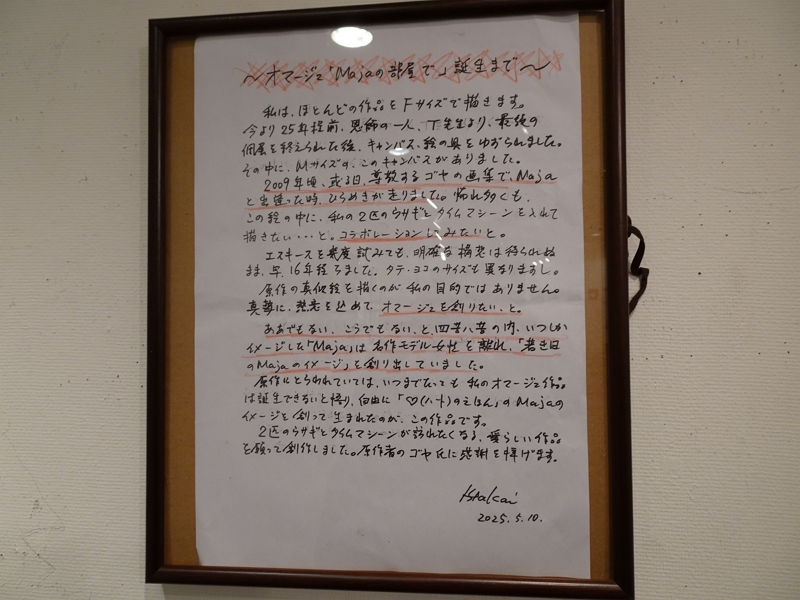 〜オマージュ「Majaの部屋で」誕生まで〜
私は、ほとんどの作品をFサイズで描きます。
今より25年程前、恩師の一人、T先生より、最後の
個展を終えられた後、キャンバス、絵の具をゆずられました。
その中に、Mサイズの、このキャンバスがありました。
2009年頃、或る日、尊敬するゴヤの画集で、Maja
と出逢った時、ひらめきが走りました。怖れ多くも、
この絵の中に、私の2匹のウサギとタイムマシーンを入れて
描きたい…と。コラボレーションしてみたいと。
エスキースを幾度試みても、明確な構想は得られぬ
まま、早、16年経ちました。タテ・ヨコのサイズも異なりますし。
原作の真似絵を描くのが私の目的ではありません。
真摯に、愁先を込めて、オマージュを創りたい、と。
ああでもない、こうでもない、と四苦八苦の内、いつしか
イメージした「Maja」は名作モデル女性を離れ、「若き日
のMajaのイメージ」を創り出していました。
原作にとらわれていては、いつまでたっても私のオマージュ作品
は誕生できないと悟り、自由に「♡(ハート)のえほん」のMajaの
イメージを創って生まれたのが、この作品です。
2匹のウサギとタイムマシーンが訪れたくなる、愛らしい作品
を願って創作しました。原作者のゴヤ氏に感謝を捧げます。
2025.5.10.